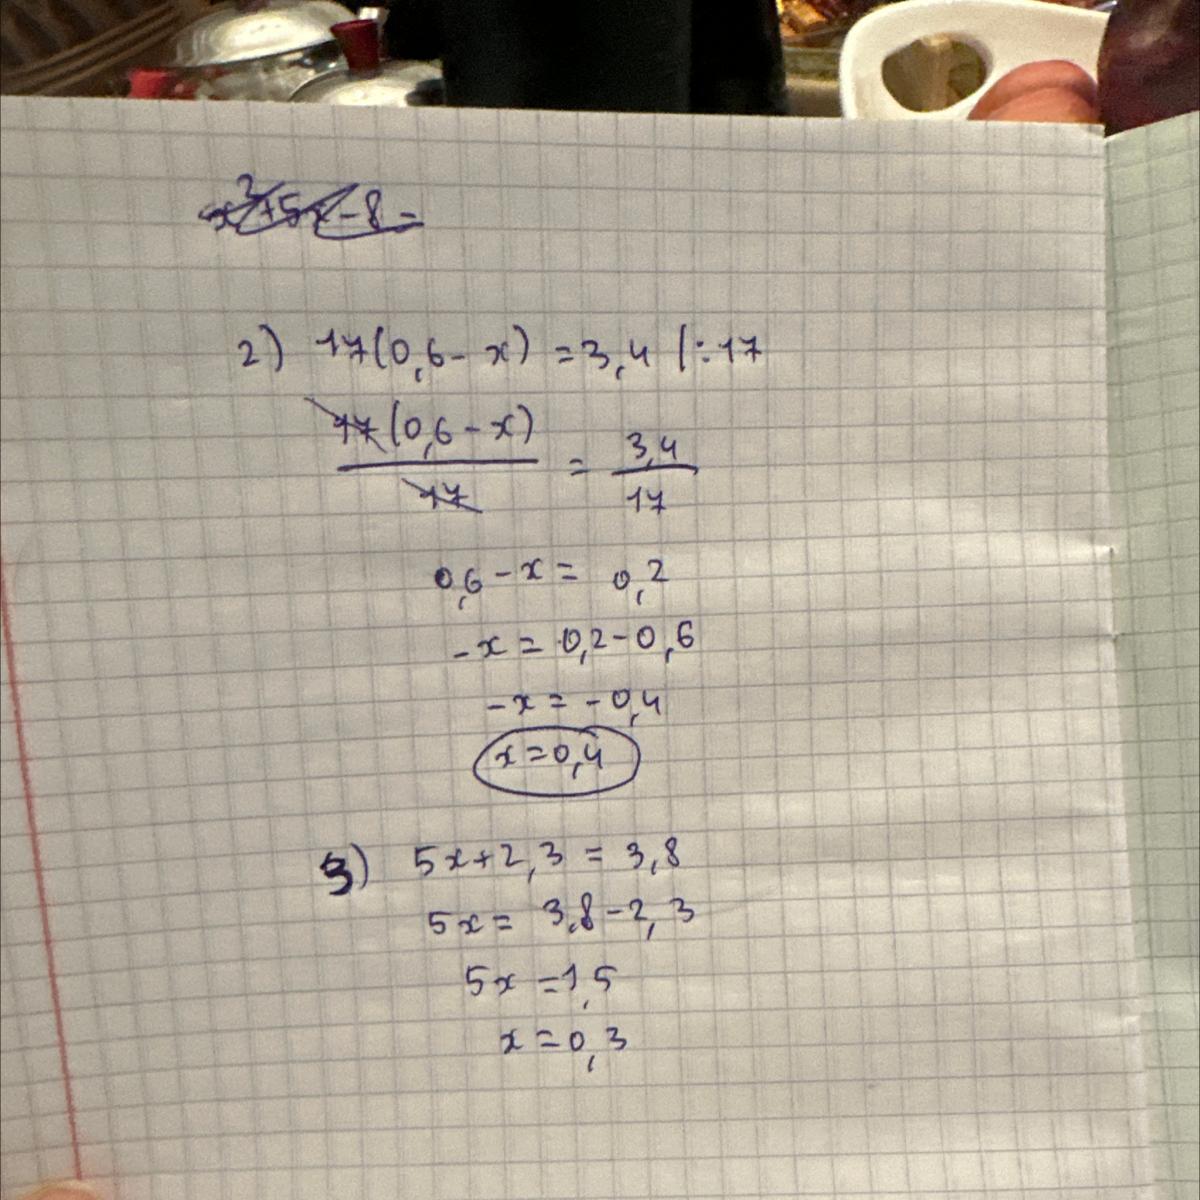 x²+5x-8=
2) 17(0,6-x)=3,4 |:17
17(0,6-x)/17 = 3,4/17
0,6-x= 0,2
-x=0,2-0,6
-x=-0,4
x=0,4
3) 5x+2,3=3,8
5x= 3,8-2,3
5x=1,5
x=0,3